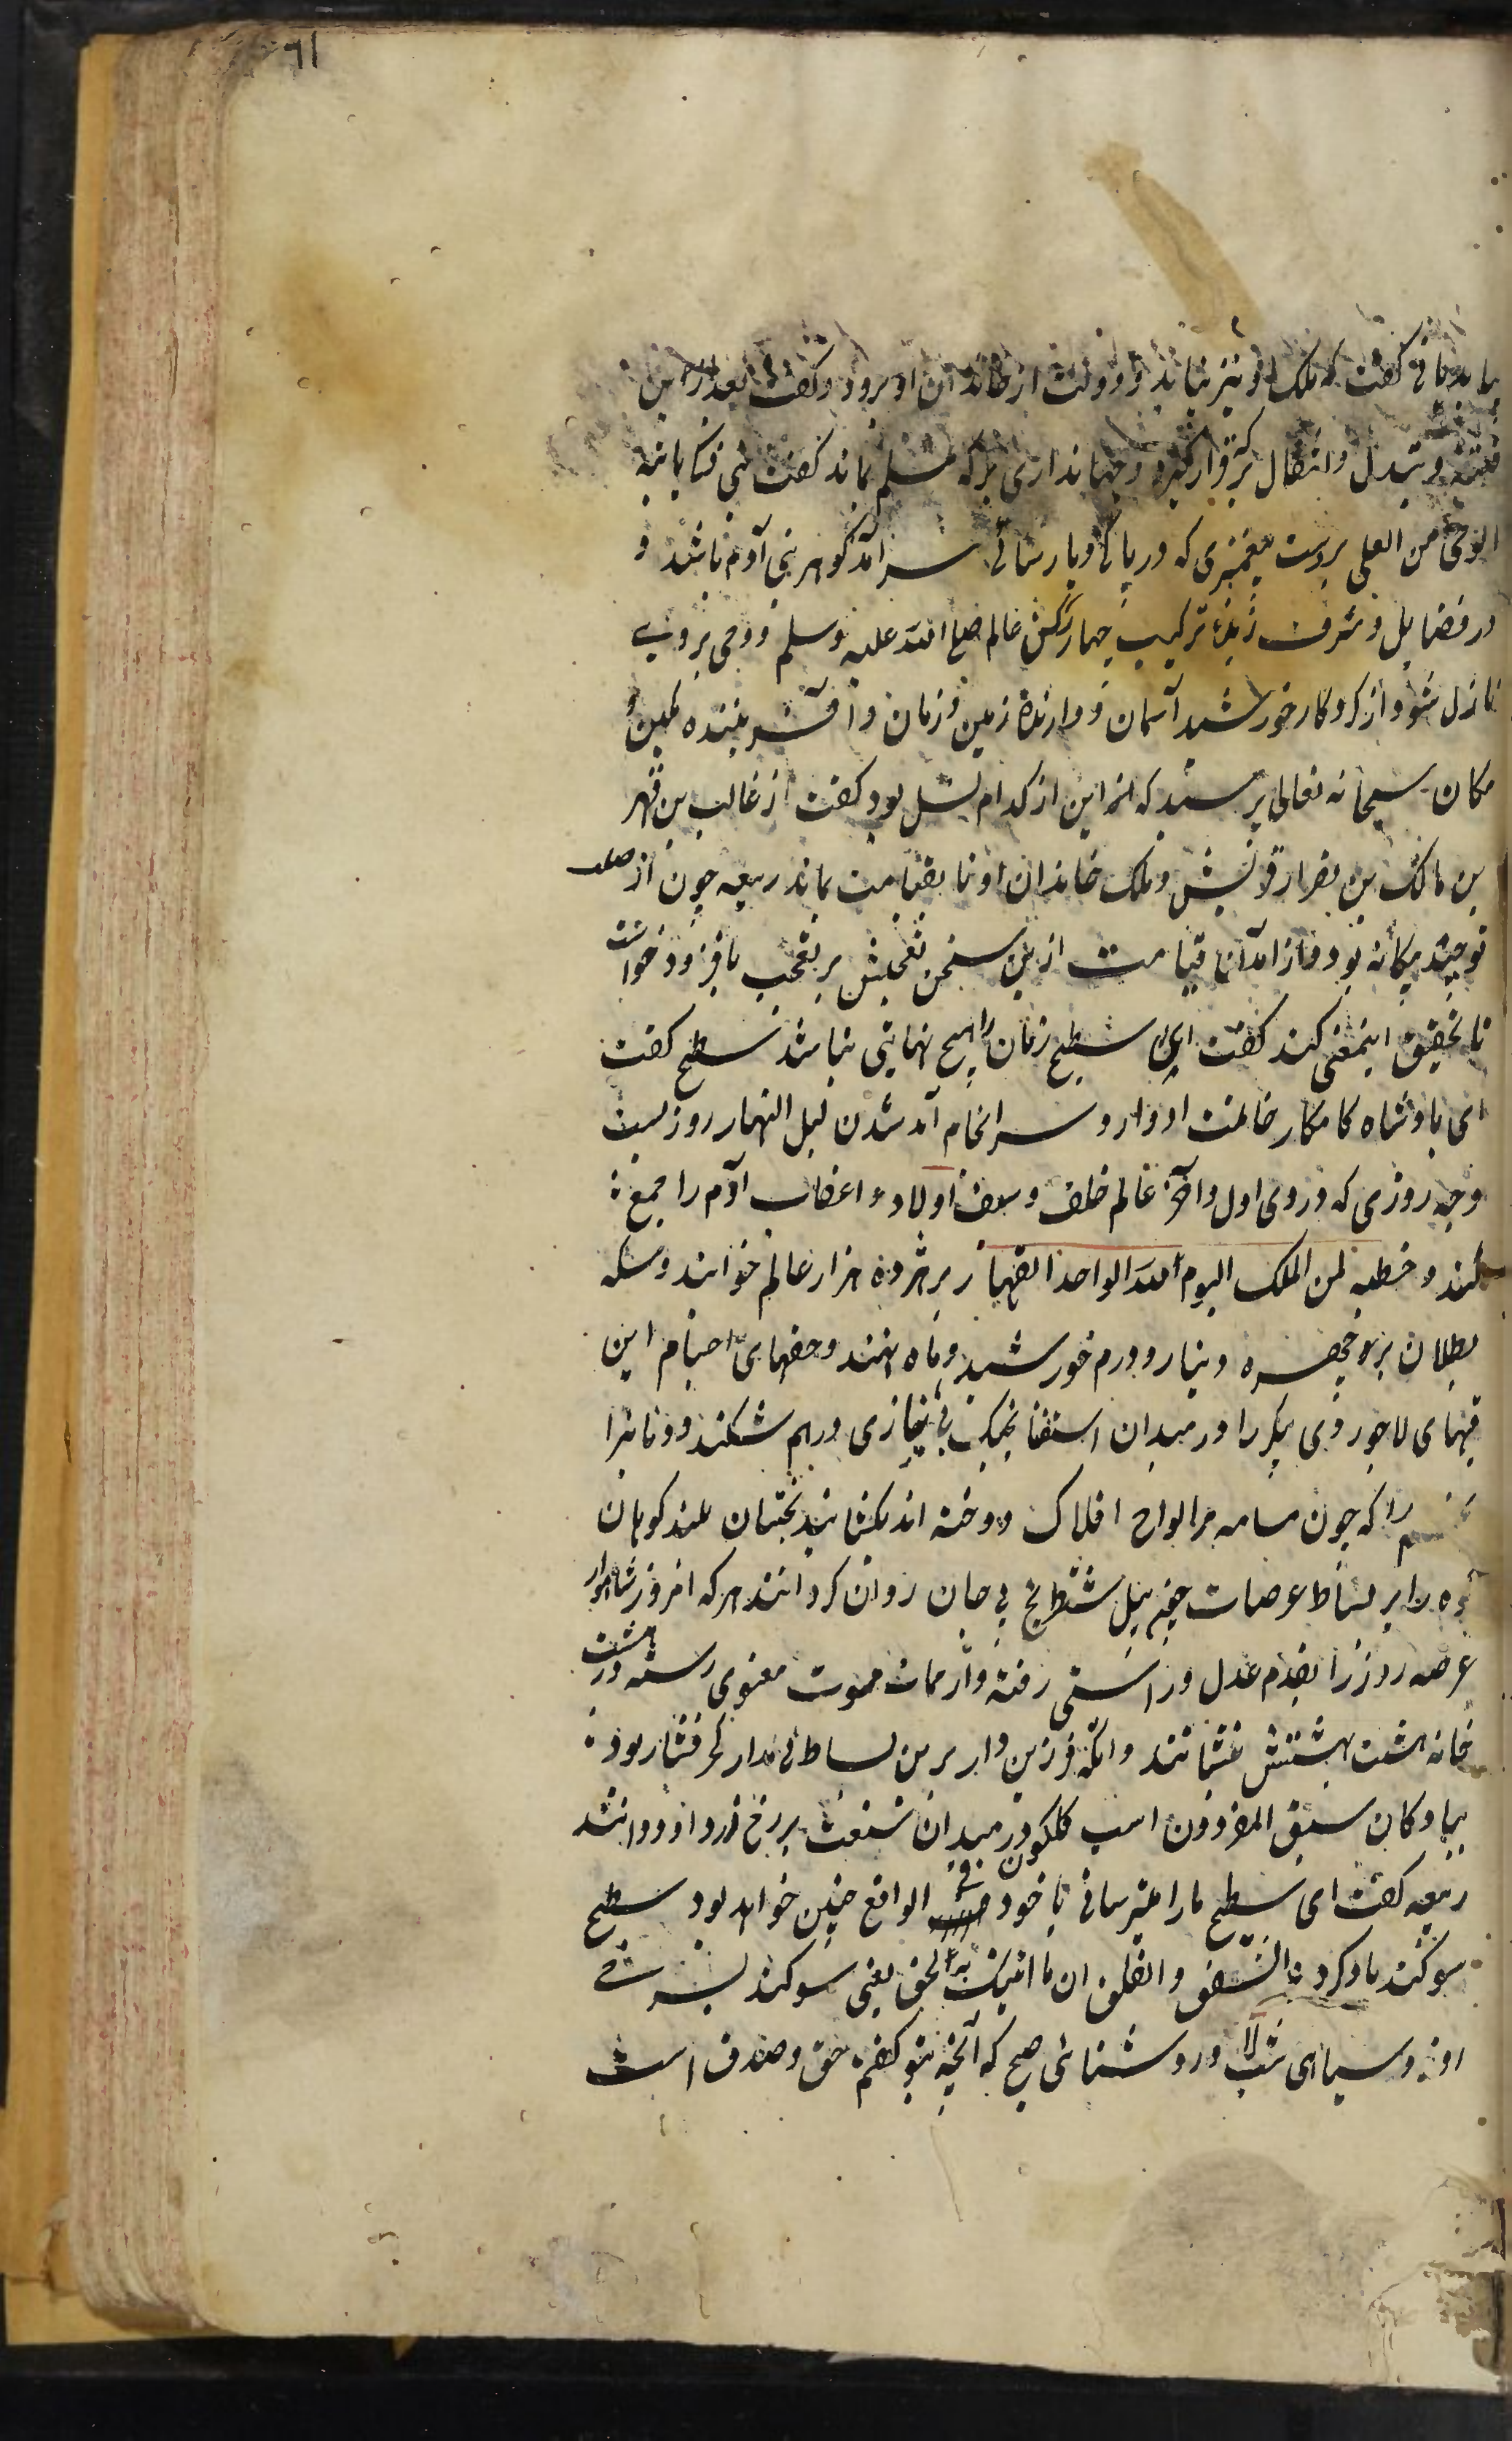 ٦١
گفت که ملک او نیز نماند و دولت از خاندان او برود و گفت بعد از این
فتنه و تبدل و انتقال بر که قرار گیرد و جهانداری بر که مسلم ماند گفت نبی زکی یاتیه
الوحی من العلی بدست پیغمبری که در پاکی و پارسائی سرآمد گوهر بنی آدم باشد و
در فضایل و شرف زبدۀ ترکیب چهار رکن عالم صلی الله علیه وسلم و وحی بروی
نازل شود از کردکار خورشید آسمان و دارندۀ زمین و زمان و آفریننده مکین و
مکان سبحانه تعالی پرسید که این از کدام نسل بود گفت از غالب بن فهر
بن مالک بن نضر از قریش و ملک خاندان او تا بقیامت بماند ربیعه چون از
توحید بیکانه بود و از آمدن قیامت ازین سخن تعجبش بر تعجب بافزود خواست
تا تحقیق اینمعنی کند گفت ای سطیح زمان را هیچ نهایتی نباشد سطیح گفت
ای پادشاه کامکار خاتمت ادوار و سرانجام آمد شدن لیل النهار روزیست
وچه روزی که در وی اول و آخر عالم خلف و سلف اولاد و اعقاب آدم را جمع
کنند و خطبه لمن الملک الیوم لله الواحد القهار بر هژده هزار عالم خوانند و سکه
بطلان بر چهره دینار و درم خورشید و ماه نهند و حقهای اجرام این
قبهای لاجوردی پیکر را در میدان استغنا بی نیازی درهم شکنند و دنانیر
را که چون مسامیر بر الواح افلاک دوخته اند بکشایند بختیان بلند کوهان
کوه را بر بساط عرصات چون پیل شطرنج بی جان روان کردانند هر که امروز شاهوار
عرصه روز را بقدم عدل و راستی رفته و از ممات موت معنوی رسته در هشت
خانه هشت بهشتش نشانند و آنکه فرزین وار برین بساط کج رفتار بود
بپیادکان سبق المفردون اسب کلکون در میدان شفقت بر رخ زرد او دوانند
ربیعه گفت ای سطیح ما را میترسانی یا خود فی الواقع چنین خواهد بود سطیح
سوکند یاد کرد والشفق والفلق ان ما انبئک به لحق یعنی سوکند بسرخی
روز و سیاهی شب و روشنائی صبح که آنچه بتو گفتم حق و صدق است